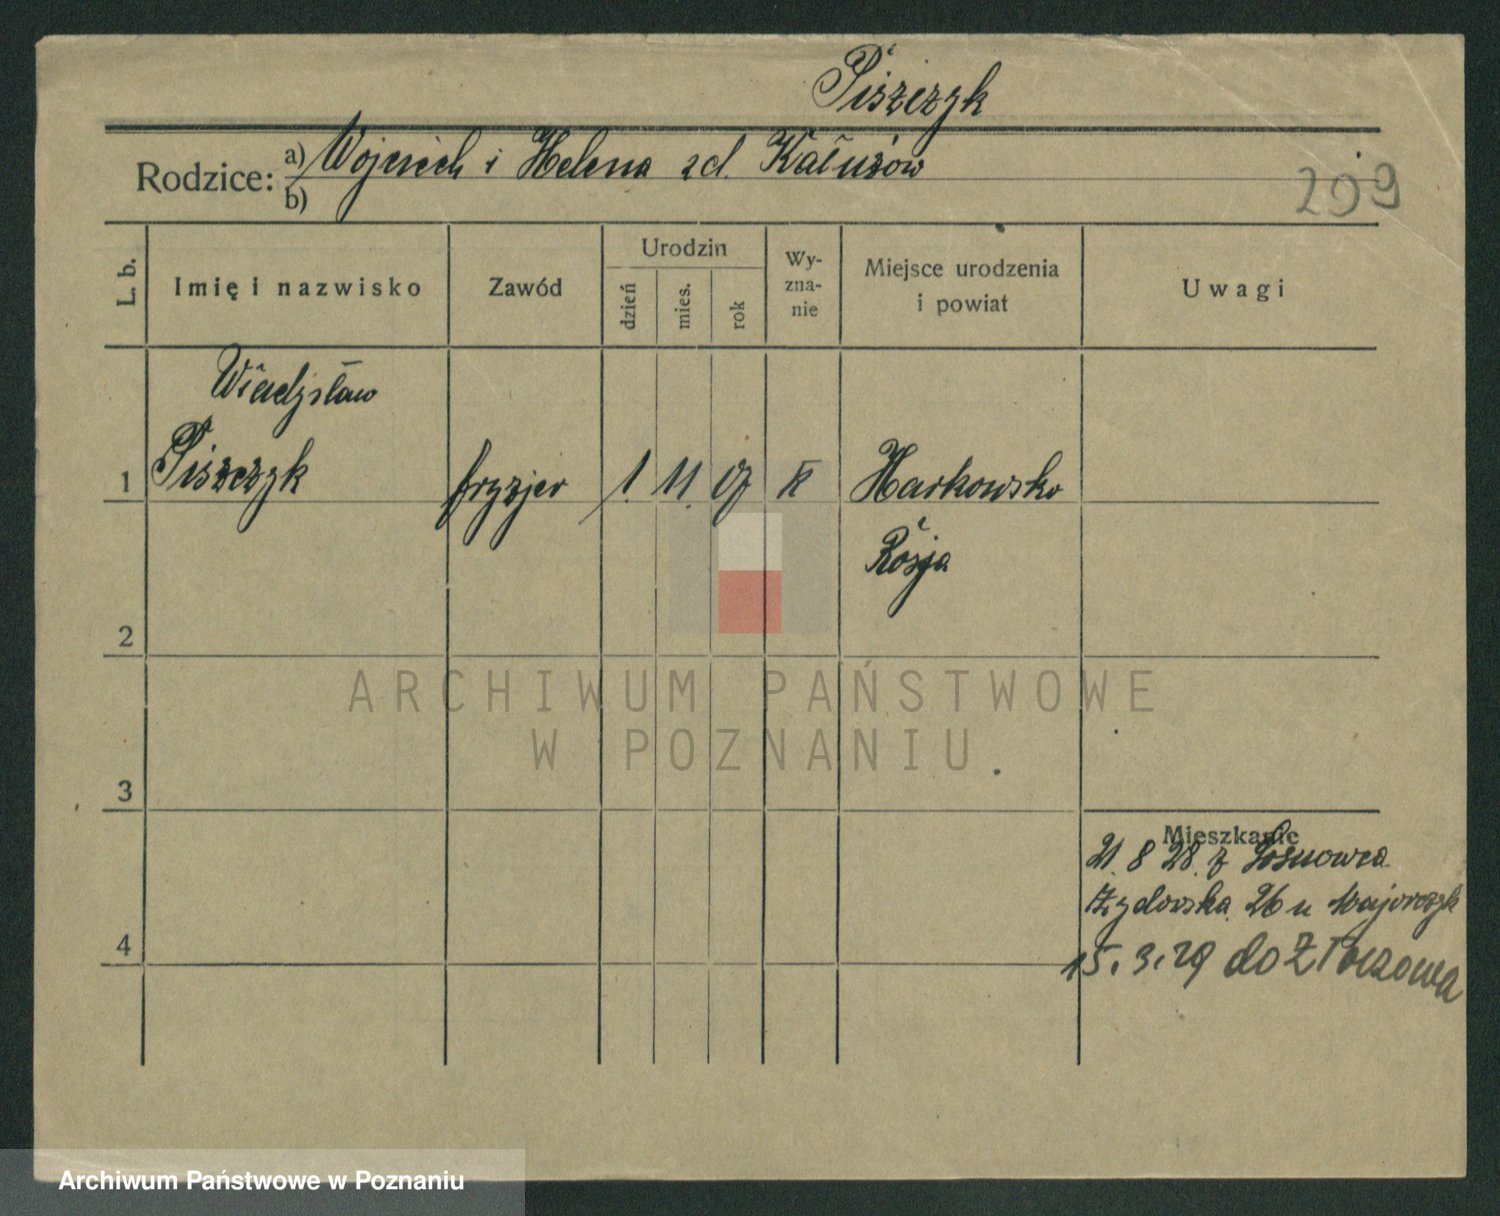 Piszczyk
Rodzice: a) Wojciech i Helena zd. Kałużów
b)
299
L. b.
Imię i nazwisko
Zawód
Urodzin
dzień
mies.
rok
Wy-
zna-
nie
Miejsce urodzenia
i powiat
Uwagi
Władysław
1 Piszczyk fryzjer 1. 11. 07 Harkowsko
Rosja
2
3
4
ARCHIWUM PAŃSTWOWE
W POZNANIU
Mieszkanie
21. 8 28. z Sosnowca
26 u
15. 3. 29 do Złoczowa
Archiwum Państwowe w Poznaniu